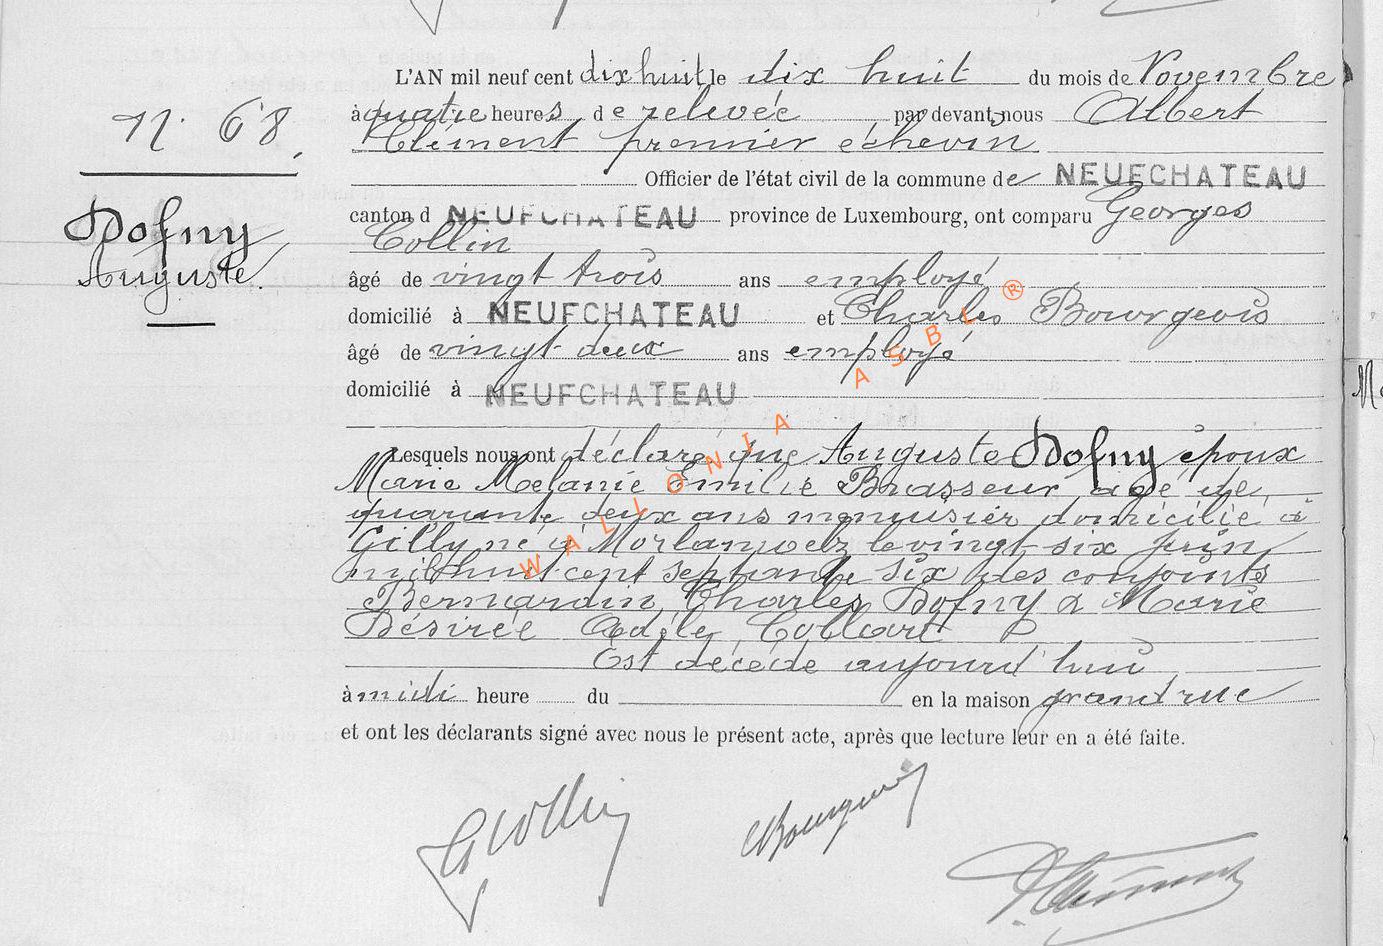 N. 68
Dofny
Auguste
L'AN mil neuf cent dixhuit le dix huit du mois de Novembre
à quatre heures, de relevée par devant nous Albert
Clément premier échevin
Officier de l'état civil de la commune de NEUFCHATEAU
canton d NEUFCHATEAU province de Luxembourg, ont comparu Georges
Collin
âgé de vingt trois ans employé
domicilié à NEUFCHATEAU et Charles Bourgeois
âgé de vingt deux ans employé
domicilié à NEUFCHATEAU
Lesquels nous ont déclaré que Auguste Dofny époux
Marie Melanie Emilie Brasseur agé de
quarante deux ans menuisier domicilié à
Gilly né à Morlanwelz le vingt-six juin
mil huit cent septante six des conjoints
Bernardin Charles Dofny & Marie
Désirée Adèle Collart
Est décédé aujourd'hui
à midi heure du en la maison grand rue
et ont les déclarants signé avec nous le présent acte, après que lecture leur en a été faite.
GCollin CBourgeois AClément
WALLONIA ASBL ®